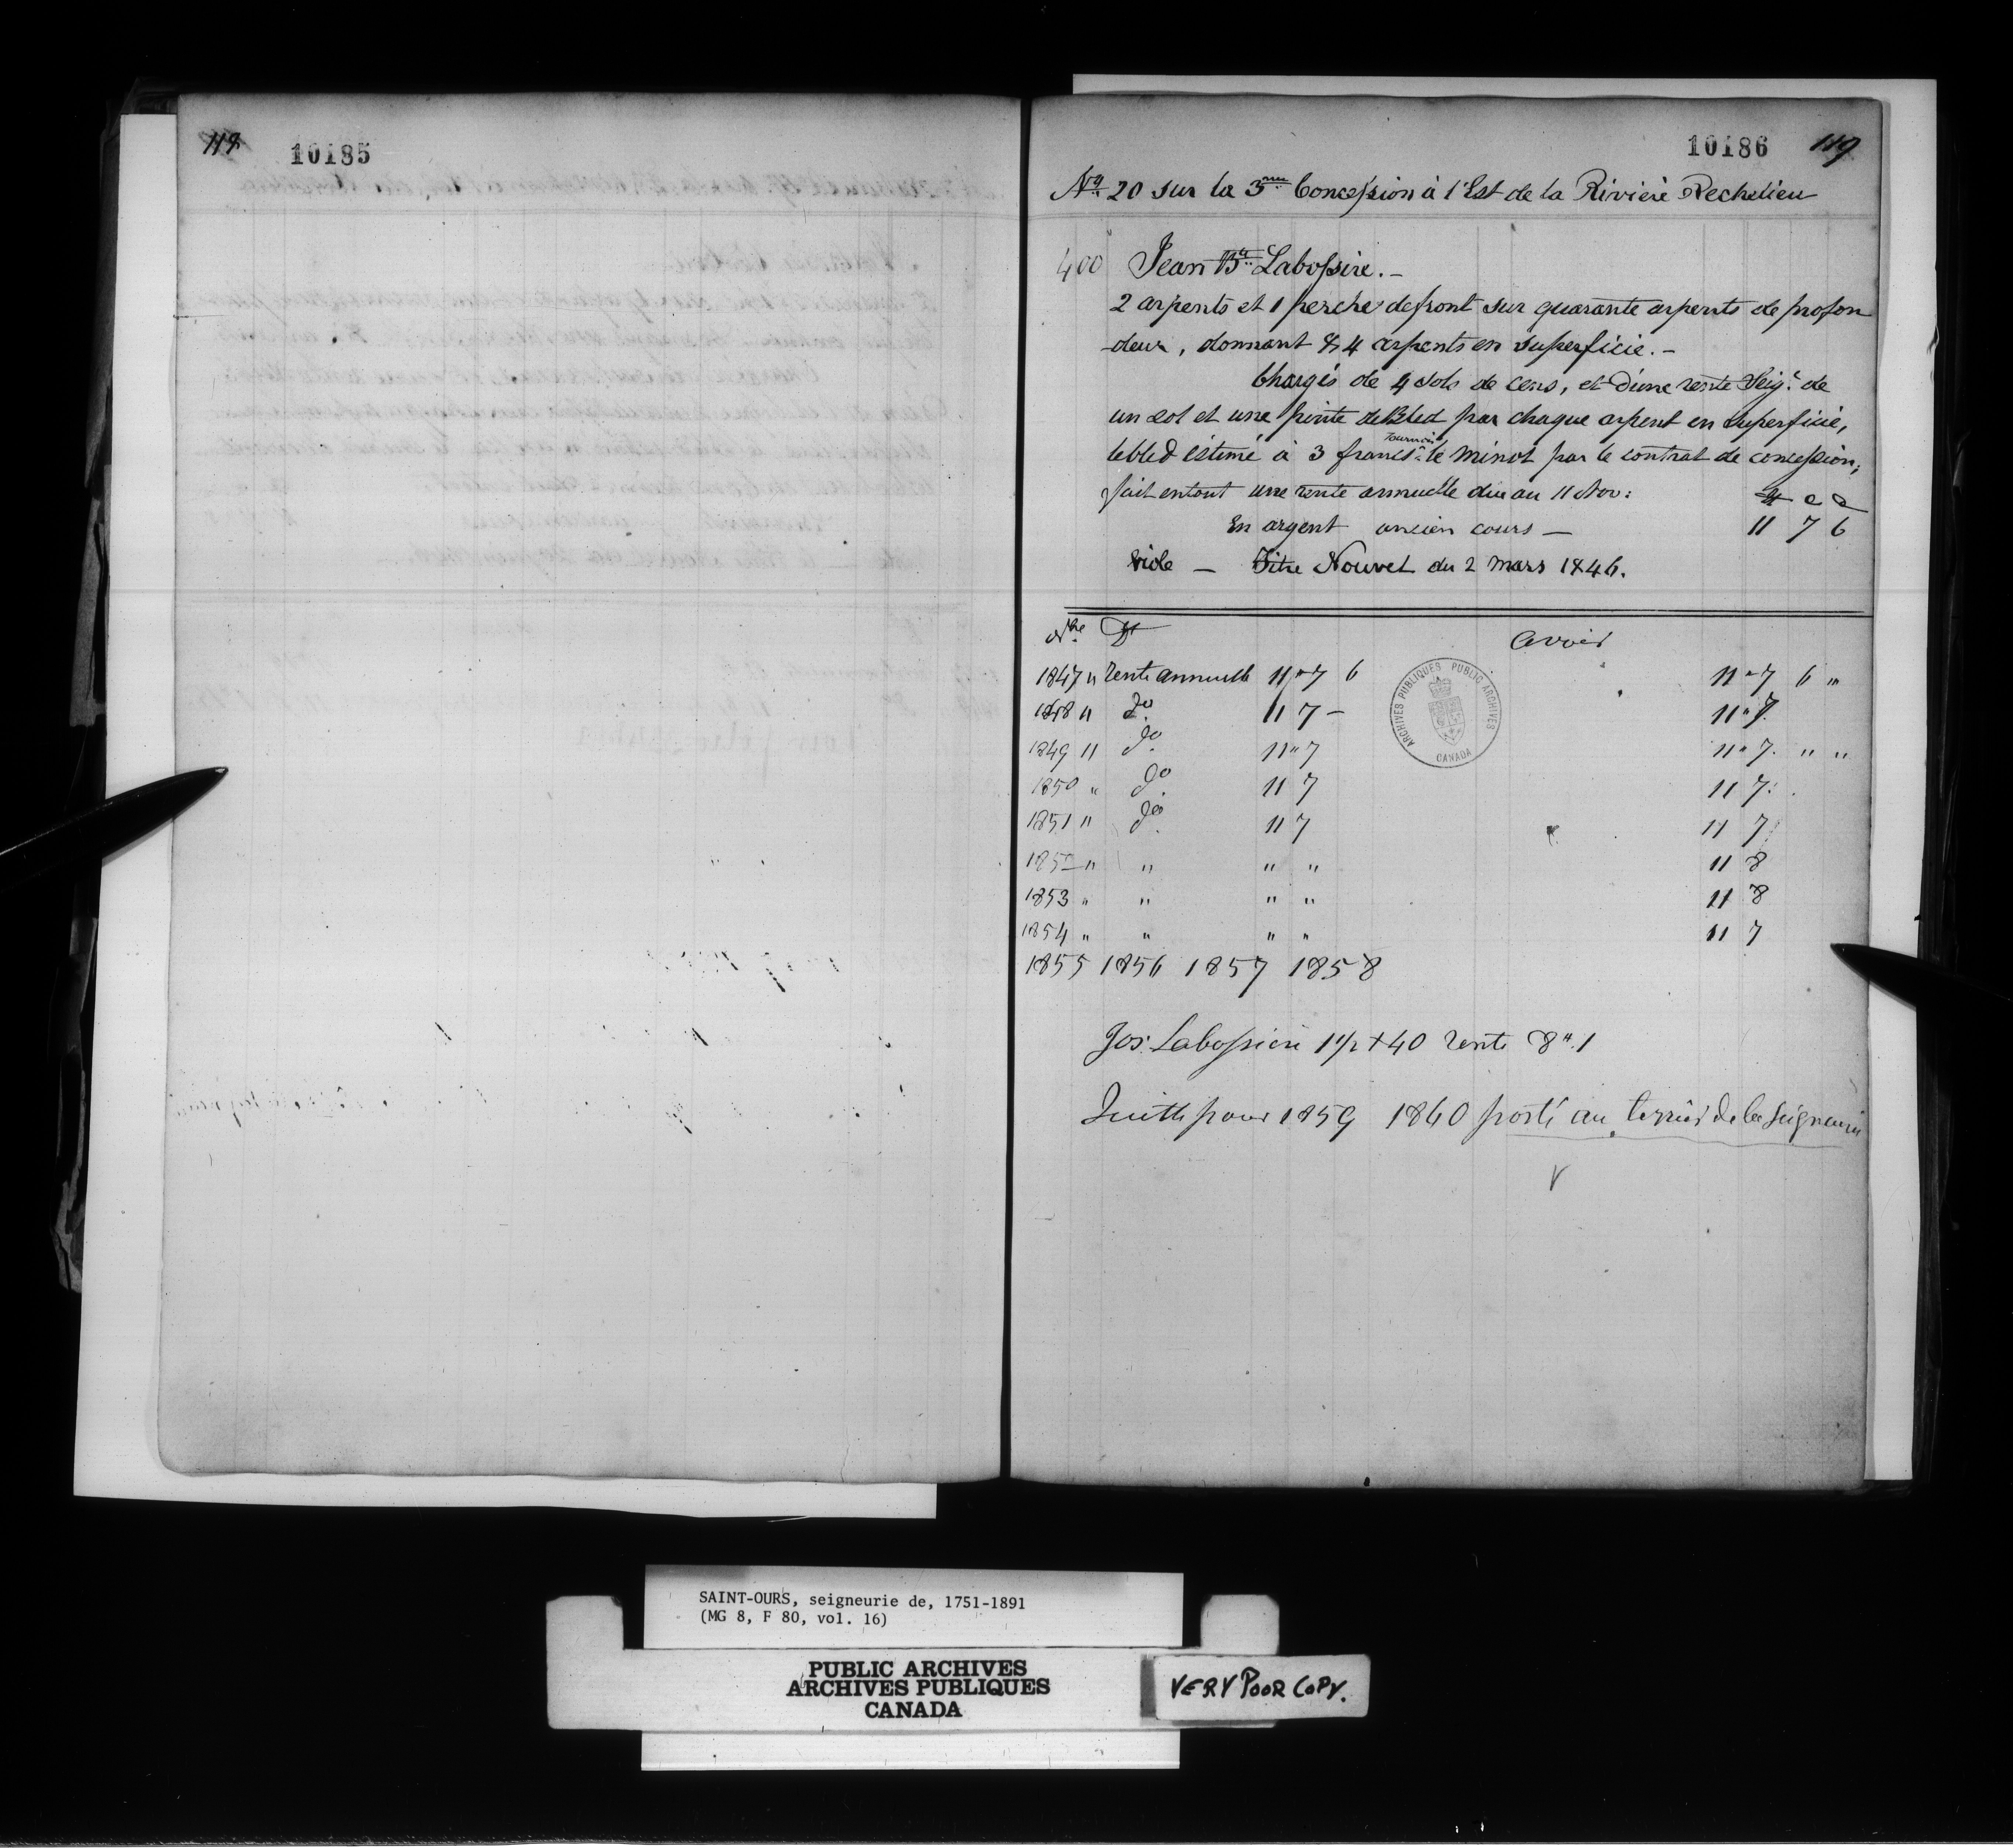 119
10185
10186
119
No 20 sur la 3me Concession à l'Est de la Riviere Rechelieu
400 Jean Bte Labossire. -
2 arpents et 1 perche de front sur quarante arpents de profon
-deur, donnant 84 arpents en superficie. -
Chargés de 4 sols de cens, et d'une rente Seigr. de
un sol et une pinte de Bled par chaque arpent en superficie,
le bled éstimé à 3 francs tournois le minot par le contrat de concession;
fait en tout une rente annuelle due au 11 Nov:
En argent ancien cours - 11 7 6
Vide - Titre Nouvel du 2 Mars 1846.
Nbre Dt Avoir
1847 " rente annuelle 11 " 7 6 11 " 7 6 "
1848 " do 11 7 - 11 " 7.
1849 " do 11 " 7 11 " 7. " "
1850 " do 11 7 11 7.
1851 " do 11 7 11 7
1852 " " " " 11 8
1853 " " " " 11 8
1854 " " " " 11 7
1855 1856 1857 1858
Jos. Labossiere 1 1/2 x 40 rente 8 " 1
pour 1859 1860 porté au terrier de la Seigneurie
ARCHIVES PUBLIQUES PUBLIC ARCHIVES
CANADA
SAINT-OURS, seigneurie de, 1751-1891
(MG 8, F 80, vol. 16)
PUBLIC ARCHIVES
ARCHIVES PUBLIQUES
CANADA
VERY POOR COPY.